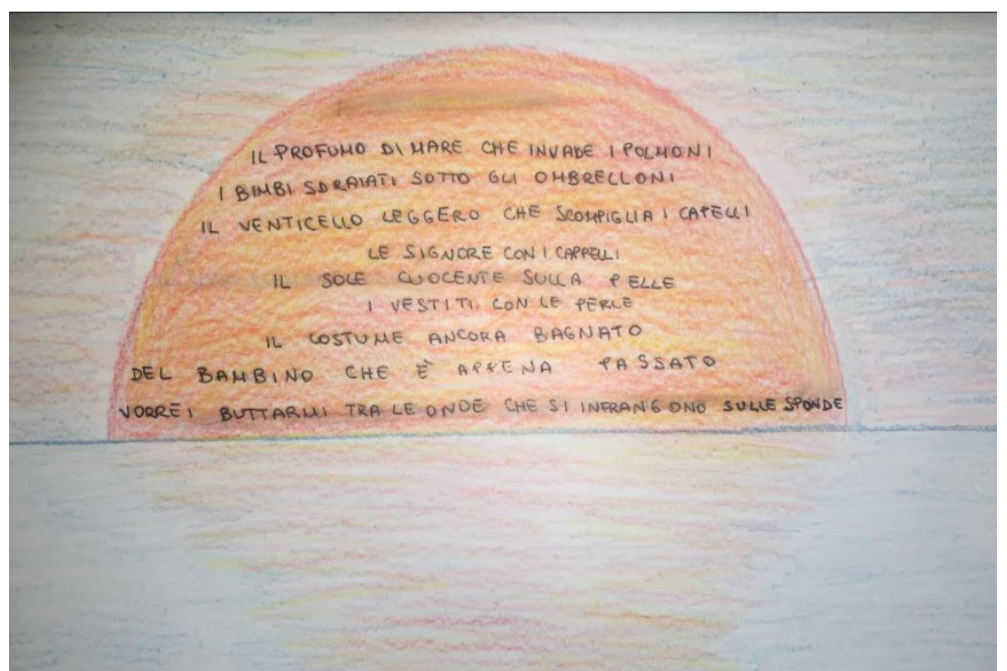 IL PROFUMO DI MARE CHE INVADE I POLMONI
I BIMBI SDRAIATI SOTTO GLI OMBRELLONI
IL VENTICELLO LEGGERO CHE SCOMPIGLIA I CAPELLI
LE SIGNORE CON I CAPPELLI
IL SOLE CUOCENTE SULLA PELLE
I VESTITI CON LE PERLE
IL COSTUME ANCORA BAGNATO
DEL BAMBINO CHE È APPENA PASSATO
VORREI BUTTARMI TRA LE ONDE CHE SI INFRANGONO SULLE SPONDE